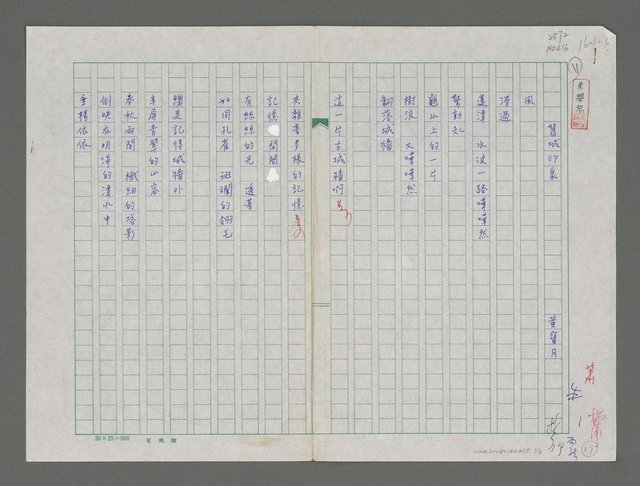 舊城印象
黃寶月
風
滑過
蓮潭 水波一路嘩嘩然
驚動起
龜山上的一片
樹浪 又嘩嘩然
翻落城牆
這一片古城牆啊
夾雜著多樣的記憶
記憶 閃閃
有絲絲的光 透著
如同孔雀 斑斕的翎毛
總是記得城牆外
半屏青翠的山容
春秋兩閣 纖細的塔影
倒映在明淨的潭水中
垂楊依依
20×25=500